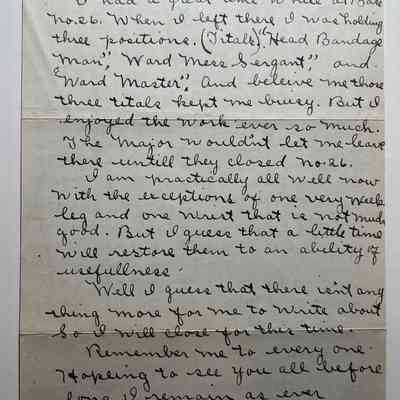 I had a great time while at Base
No. 26. When I left there I was holding
three positions. (Titals) "Head Bandage
Man", Ward Mess Sergant", and
"Ward Master", And beleive me those
three titals kept me buisy. But I
enjoyed the work ever so much.
The Major wouldn't let me leave
there untill they closed No. 26.
I am practically all well now
with the exceptions of one very weak
leg and one wrist that is not much
good. But I guess that a little time
will restore them to an ability of
usefullness.
Well I guess that there isn't any
thing more for me to write about
So I will close for this time.
Remember me to every one.
Hopeing to see you all before
long I remain as ever